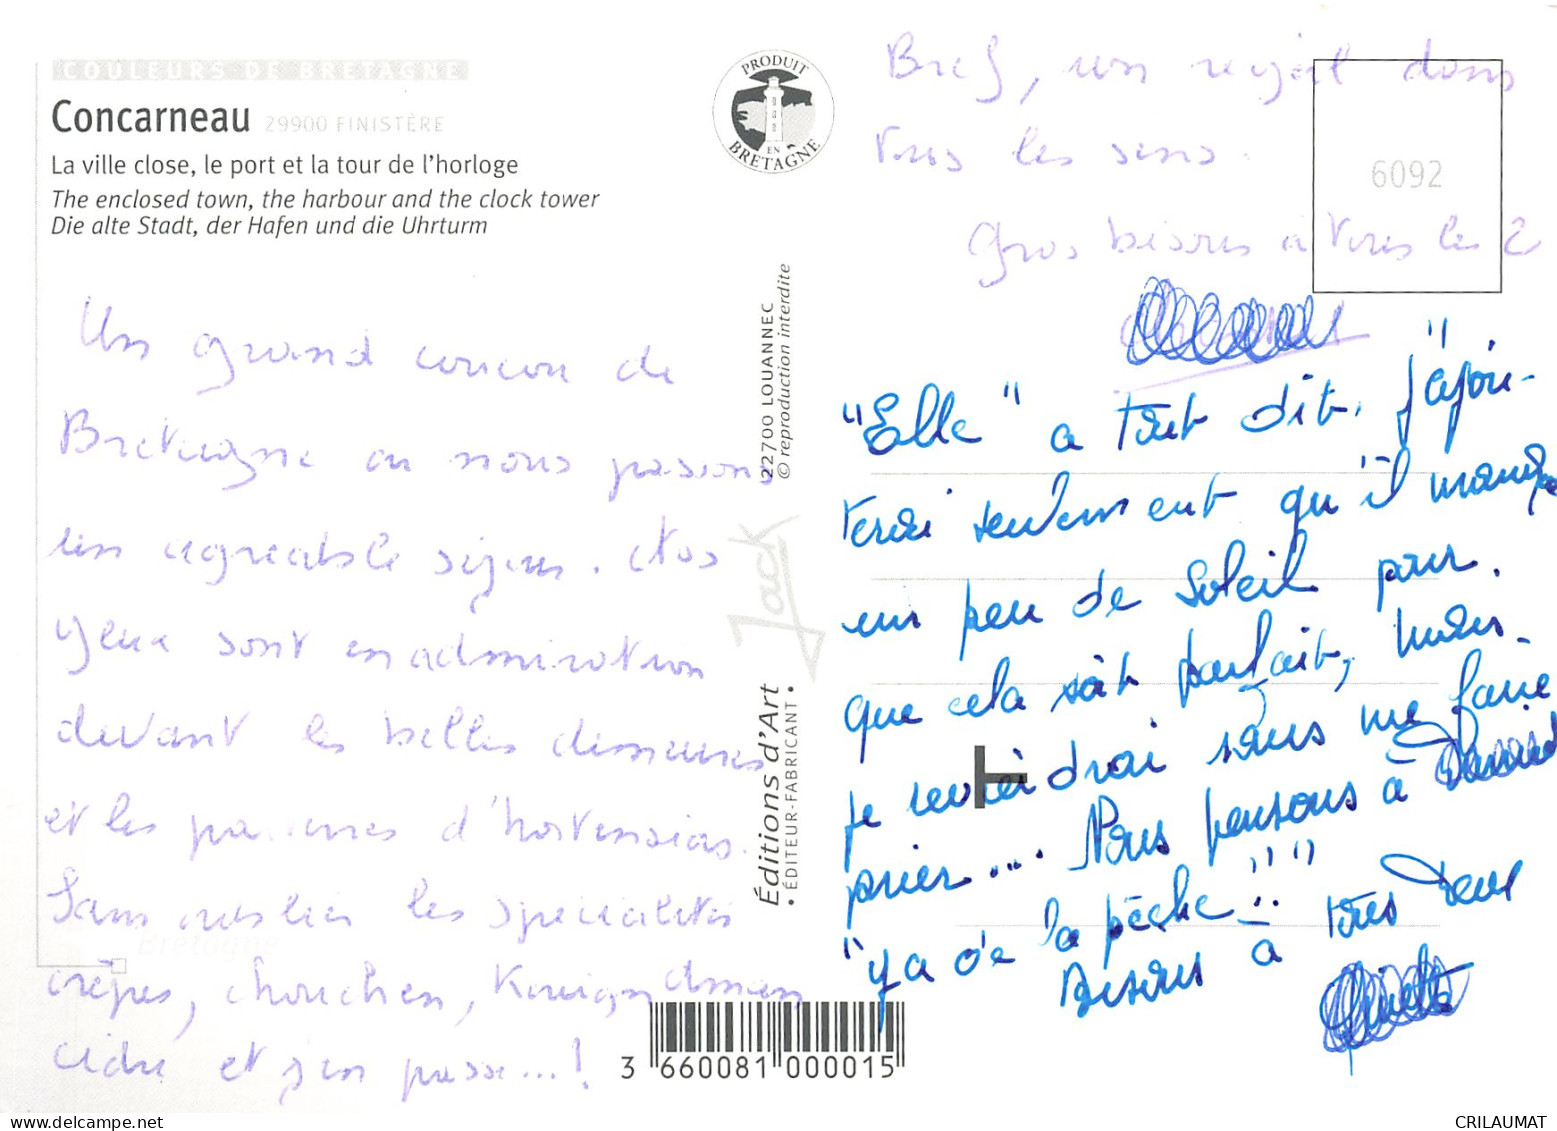 COULEURS DE BRETAGNE
Concarneau 29900 FINISTÈRE
La ville close, le port et la tour de l'horloge
The enclosed town, the harbour and the clock tower
Die alte Stadt, der Hafen und die Uhrturm
Un grand coucou de
Bretagne où nous passons
un agréable séjour. Nos
yeux sont en admiration
devant les belles demeures
et les parterres d'hortensias.
Sans oublier les spécialités
crêpes, chouchen, Kouign Aman
cidre et j'en passe...!
PRODUIT
EN
BRETAGNE
22700 LOUANNEC
© reproduction interdite
Jack
Éditions d'Art
• ÉDITEUR-FABRICANT •
Bretagne
3 660081 000015
Bref, un régal dans
tous les sens.
Gros bisous à vous les 2
6092
"Elle" a tout dit, j'ajou-
terai seulement qu'il manque
un peu de soleil pour
que cela soit parfait, mais
je reviendrai sans me faire
prier.... Nous pensons à
"y a de la pêche"!!
Bisous à tous deux
CRILAUMAT